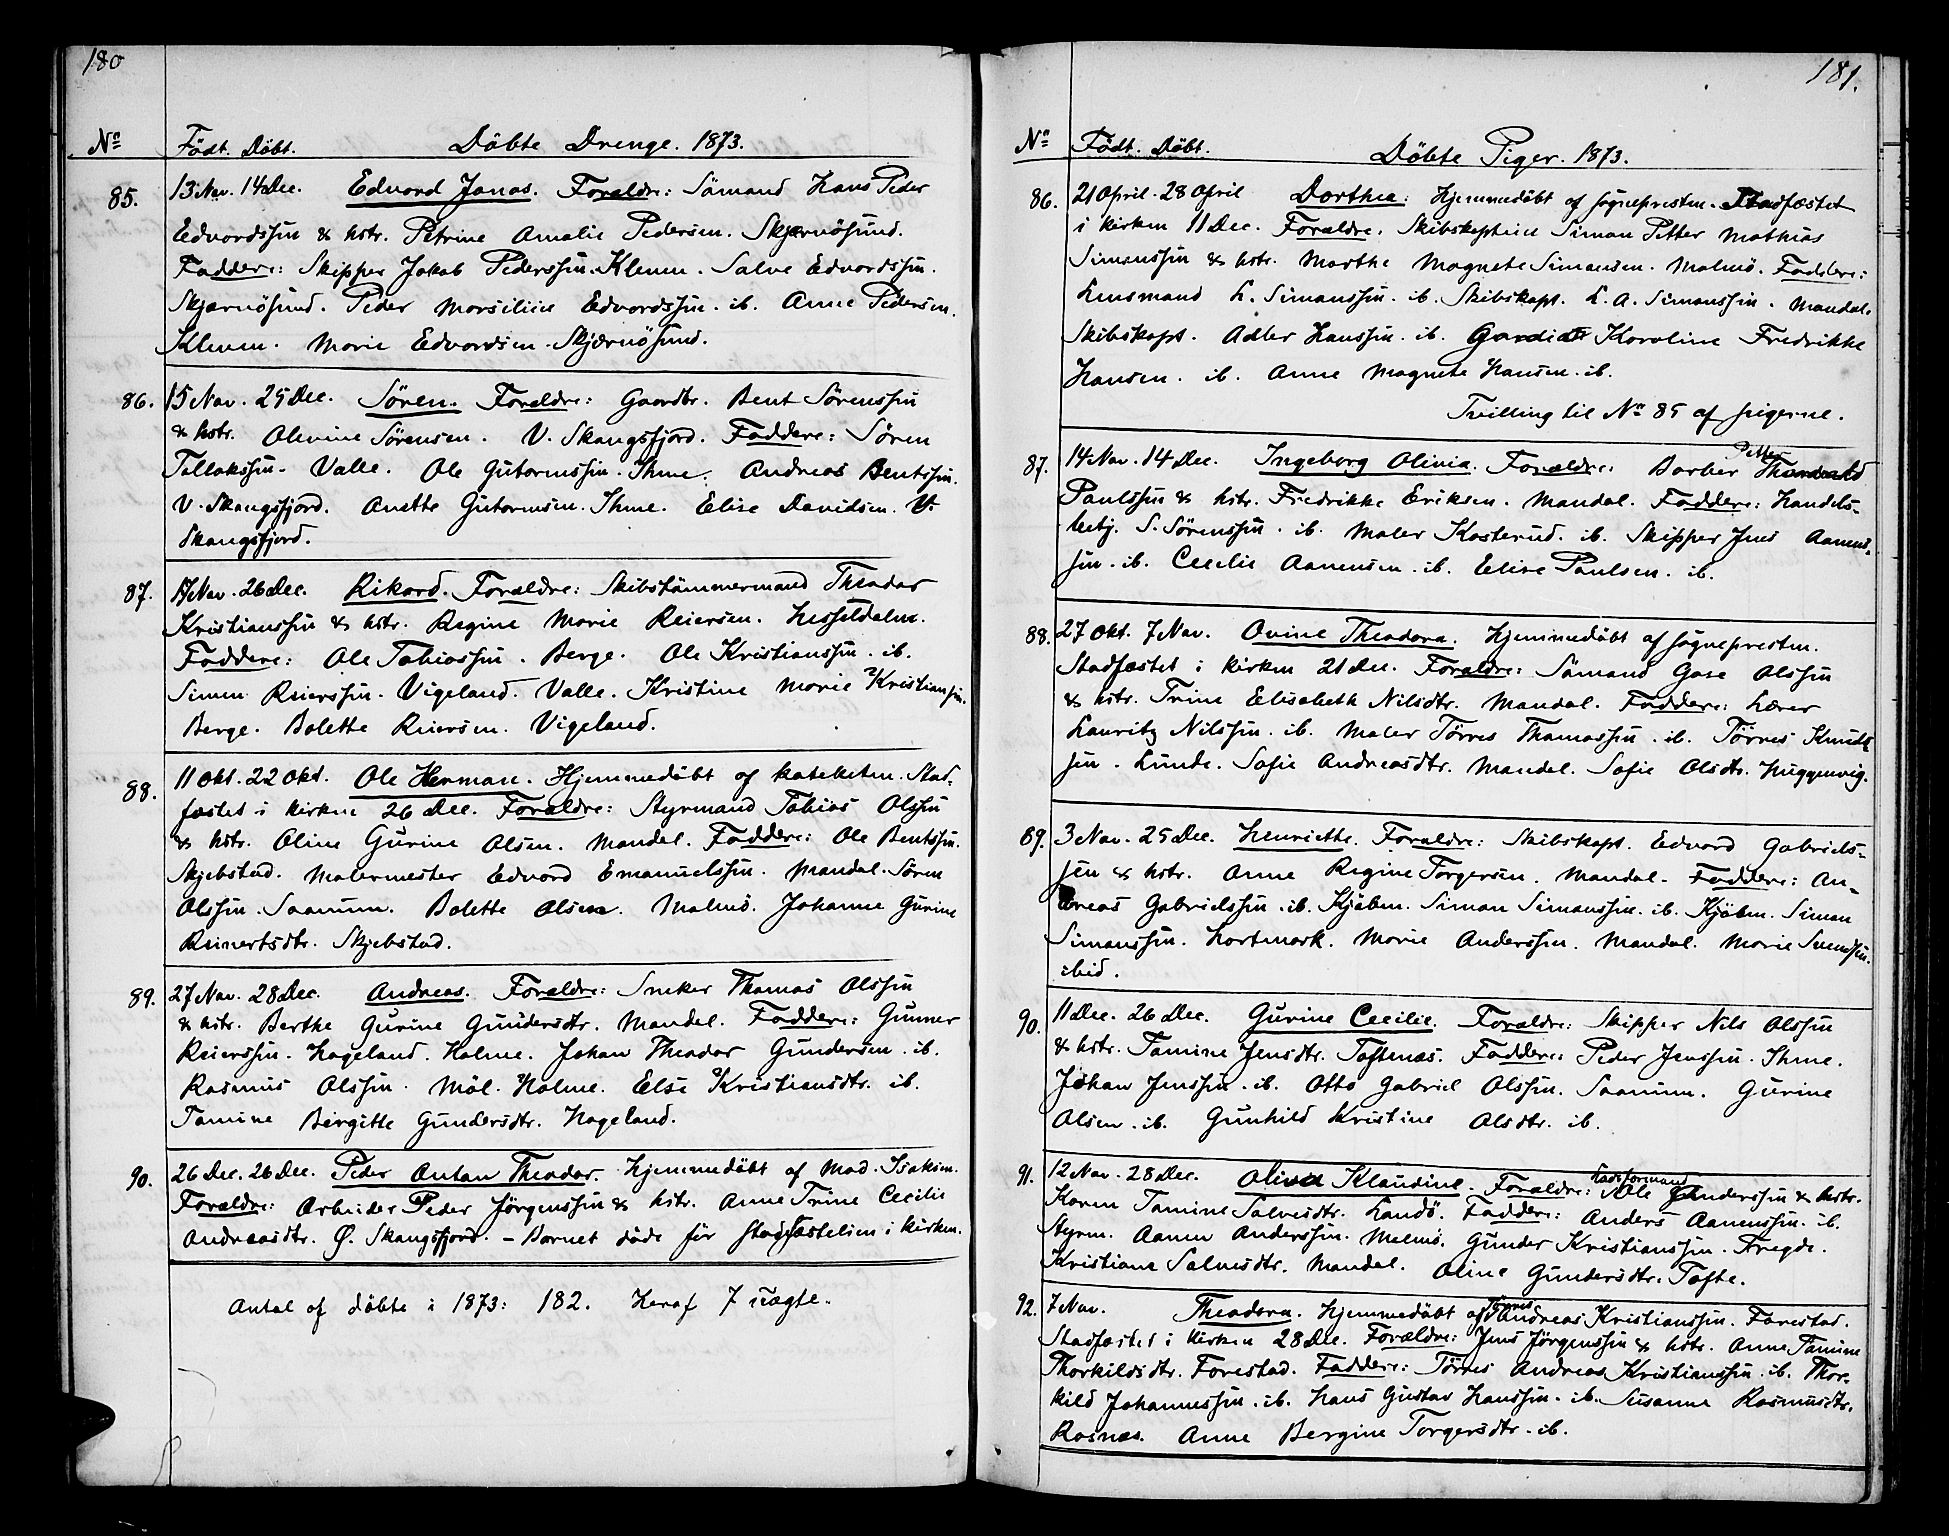 180
No Födt. Döbt. Döbte Drenge. 1873.
85. 13 Nov. 14 Dec. Edvard Jonas. Forældre: Sömand Hans Peder
Edvardssøn & hstr. Petrine Amalie Pedersen. Skjernösund.
Faddere: Skipper Jakob Pederssøn. Kleven. Salve Edvardssøn.
Skjernösund. Peder Marsilius Edvardssøn. ib. Anne Pedersen.
Kleven. Marie Edvardsen. Skjærnösund.
86. 15 Nov. 25 Dec. Sören. Forældre: Gaardbr. Bent Sörenssøn
& hstr. Olevine Sörensen. V. Skangsfjord. Faddere: Sören
Tollakssøn. Valle. Ole Gutormssøn. Ihme. Andreas Bentssøn.
V. Skangsfjord. Anette Gutormsen. Ihme. Elise Davidsen. V.
Skangsfjord.
87. 17 Nov. 26 Dec. Rikard. Forældre: Skibstömmermand Theodor
Kristianssøn & hstr. Regine Marie Reiersen. Hesseldalen.
Faddere: Ole Tobiassøn. Berge. Ole Kristianssøn. ib.
Simen Reierssøn. Vigeland. Valle. Kristine Marie Kristiansen.
Berge. Bolette Reiersen. Vigeland.
88. 11 Okt. 22 Okt. Ole Herman. Hjemmedöbt af kateketen. Stad-
fæstet i kirken 26 Dec. Forældre: Styrmand Tobias Olssøn
& hstr. Oline Gurine Olsen. Mandal. Faddere: Ole Bentssøn.
Skjebstad. Malermester Edvard Emanuelssøn. Mandal. Sören
Olssøn. Saanum. Bolette Olsen. Malmö. Johanne Gurine
Reinertsdtr. Skjebstad.
89. 27 Nov. 28 Dec. Andreas. Forældre: Snekker Thomas Olssøn
& hstr. Berthe Gurine Gundersdtr. Mandal. Faddere: Gunner
Reierssøn. Hageland. Holme. Johan Theodor Gundersen. ib.
Rasmus Olssøn. Möl. Holme. Else Kristiansdtr. ib.
Tamine Bergitte Gundersdtr. Hageland.
90. 26 Dec. 26 Dec. Peder Antan Theodor. Hjemmedöbt af Mad. Isaksen.
Forældre: Arbeider Peder Jörgenssøn & hstr. Anne Trine Cecilie
Andreasdtr. Ö. Skangsfjord. - Barnet döde för stadfæstelsen i kirken.
Antal af döbte i 1873: 182. Heraf 7 uægte.
181.
No Födt. Döbt. Döbte Piger. 1873.
86. 21 April. 28 April Dorthea: Hjemmedöbt af sognepresten. Stadfæstet
i kirken 11 Dec. Forældre. Skibskaptein Simon Petter Mathias
Simonssøn & hstr. Marthe Magnete Simonsen. Malmö. Faddere:
Lensmand L. Simonssøn. ib. Skibskapt. L. A. Simonssøn. Mandal.
Skibskapt. Adler Hanssøn. ib. Karoline Fredrikke
Hansen. ib. Anne Magnete Hansen. ib.
Tvilling til No 85 af pigerne.
87. 14 Nov. 14 Dec. Ingeborg Olivia. Forældre: Barber Petter
Paulssøn & hstr. Fredrikke Eriksen. Mandal. Faddere: Handels-
betj. S. Sörenssøn. ib. Maler Kosterud. ib. Skipper Jens Aanens-
søn. ib. Cecilie Aanensen. ib. Elise Paulsen. ib.
88. 27 Okt. 7 Nov. Ovine Theodora. Hjemmedöbt af sognepresten.
Stadfæstet i kirken 21 Dec. Forældre: Sömand Gose Olssøn
& hstr. Trine Elisabeth Nilsdtr. Mandal. Faddere: Lærer
Lauritz Nilssøn. ib. Maler Törres Thomassøn. ib. Törres Knuds-
søn. Lunde. Sofie Andreasdtr. Mandal. Sofie Olsdtr. Huggenvig.
89. 3 Nov. 25 Dec. Henriette. Forældre: Skibskapt. Edvard Gabriels-
søn & hstr. Anne Regine Torgersen. Mandal. Faddere: An-
dreas Gabrielssøn. ib. Kjöbm. Simon Simonssøn. ib. Kjöbm. Simon
Simonssøn. Hortmark. Marie Anderssen. Mandal. Marie Svendsen.
ibid.
90. 11 Dec. 26 Dec. Gurine Cecilie. Forældre: Skipper Nils Olssøn
& hstr. Tamine Jensdtr. Toftenæs. Faddere: Peder Jenssøn. Ihme.
Johan Jenssøn. ib. Otto Gabriel Olssøn. Saanum. Gurine
Olsen. ib. Gunhild Kristine Olsdtr. ib.
91. 12 Nov. 28 Dec. Oliva Klaudine. Forældre: Ladsformand Ole Gunderssøn & hstr.
Karen Tamine Salvesdtr. Landö. Faddere: Anders Aanenssøn. ib.
Styrm. Aanen Anderssøn. Malmö. Gunder Kristianssøn. Tregde.
Kristiane Salvesdtr. Mandal. Oline Gundersdtr. Tofte.
92. 7 Nov. Theodora. Hjemmedöbt af Törres Andreas Kristianssøn. Farestad.
Stadfæstet i kirken 28 Dec. Forældre: Jens Jörgenssøn & hstr. Anne Tamine
Thorkildsdtr. Farestad. Faddere: Törres Andreas Kristianssøn. ib. Thor-
kild Johannessøn. ib. Hans Gustav Hanssøn. ib. Susanne Rasmusdtr.
Rosnæs. Anne Bergine Torgersdtr. ib.